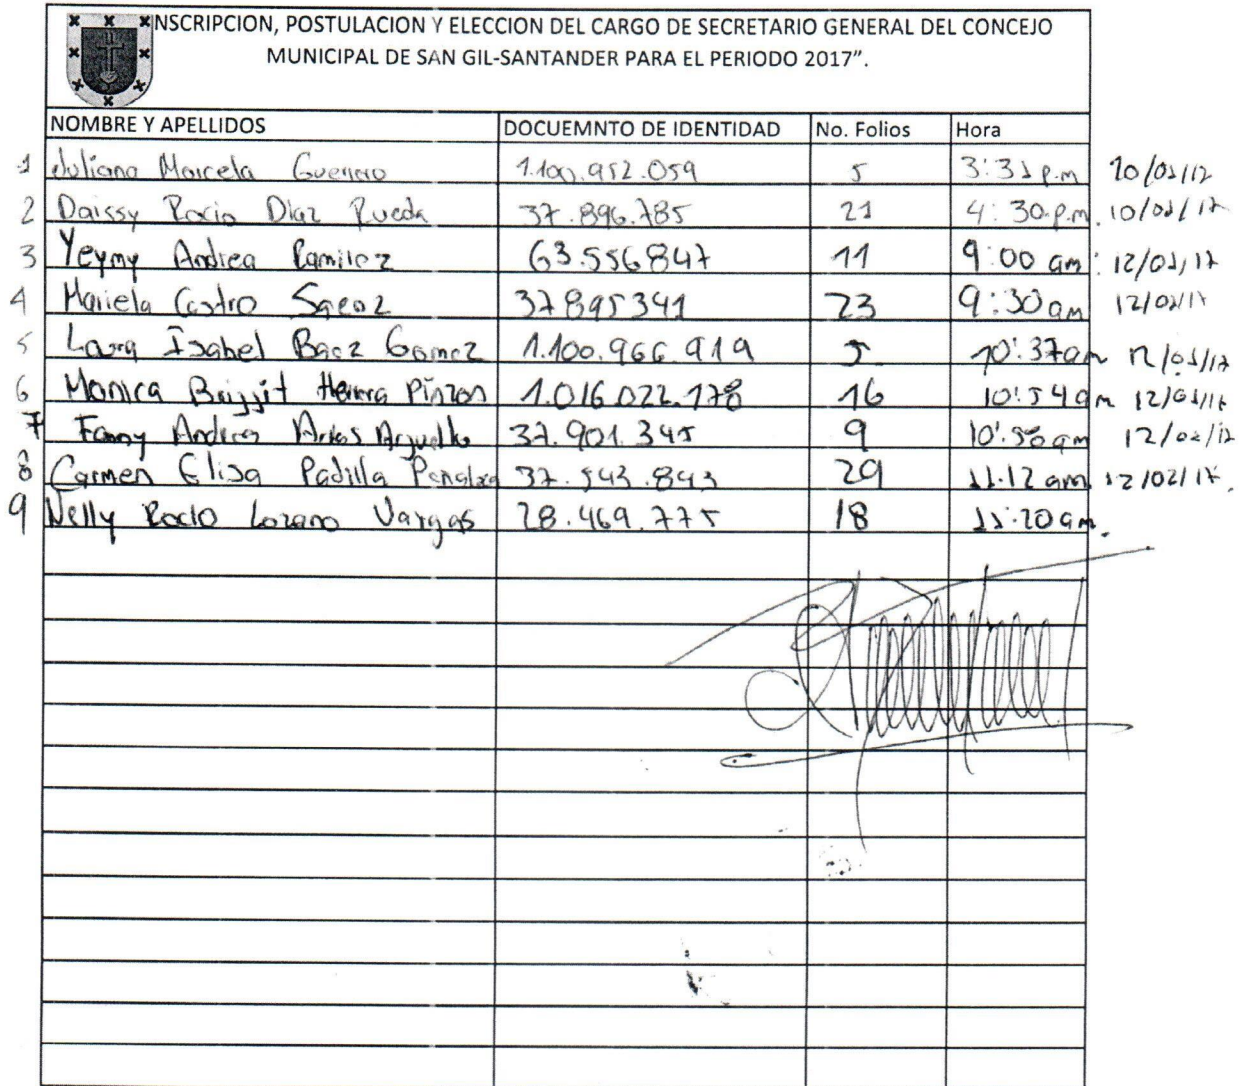 NSCRIPCION, POSTULACION Y ELECCION DEL CARGO DE SECRETARIO GENERAL DEL CONCEJO
MUNICIPAL DE SAN GIL-SANTANDER PARA EL PERIODO 2017”.
NOMBRE Y APELLIDOS DOCUEMNTO DE IDENTIDAD No. Folios Hora
1 Juliana Marcela Guerrero 1.100.952.059 5 3:31 p.m 10/01/17
2 Daissy Rocio Diaz Rueda 37.896.785 21 4:30 p.m. 10/01/17
3 Yeymy Andrea Ramirez 63.556847 11 9:00 am 12/01/17
4 Mariela Castro Saenz 37895341 23 9:30 am 12/01/17
5 Laura Isabel Baez Gomez 1.100.966.919 5 10:37am 12/01/17
6 Monica Briggit Herrera Pinzon 1.016.022.178 16 10:54 am 12/01/17
7 Fanny Andrea Arias Arguello 37.901.345 9 10:58 am 12/02/17
8 Carmen Elisa Padilla Penaloza 37.543.843 29 11:12 am 12/02/17.
9 Nelly Rocio Lozano Vargas 28.469.775 18 11:20 am.